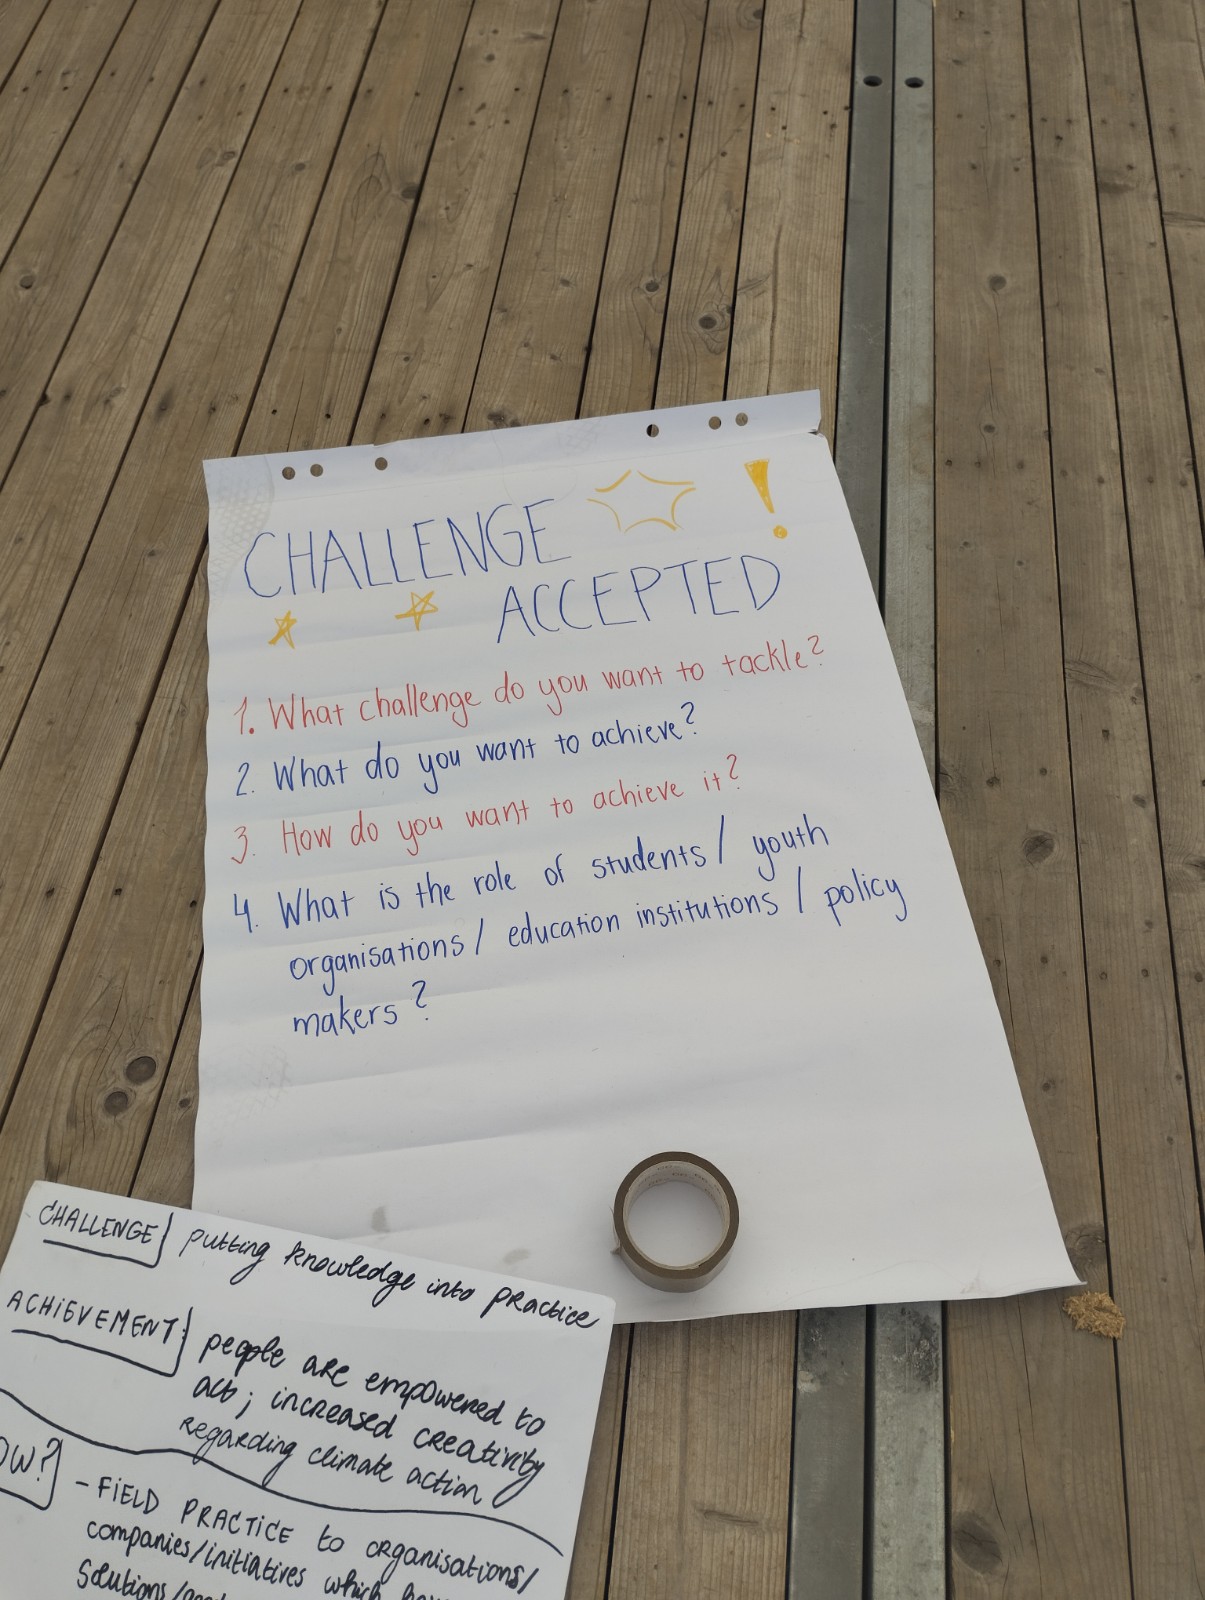 CHALLENGE !
ACCEPTED
1. What challenge do you want to tackle?
2. What do you want to achieve?
3. How do you want to achieve it?
4. What is the role of students / youth
organisations / education institutions / policy
makers?
CHALLENGE putting knowledge into practice
ACHIEVEMENT: people are empowered to
act; increased creativity
regarding climate action
OW?
- FIELD PRACTICE to organisations/
companies/initiatives which
Solutions/